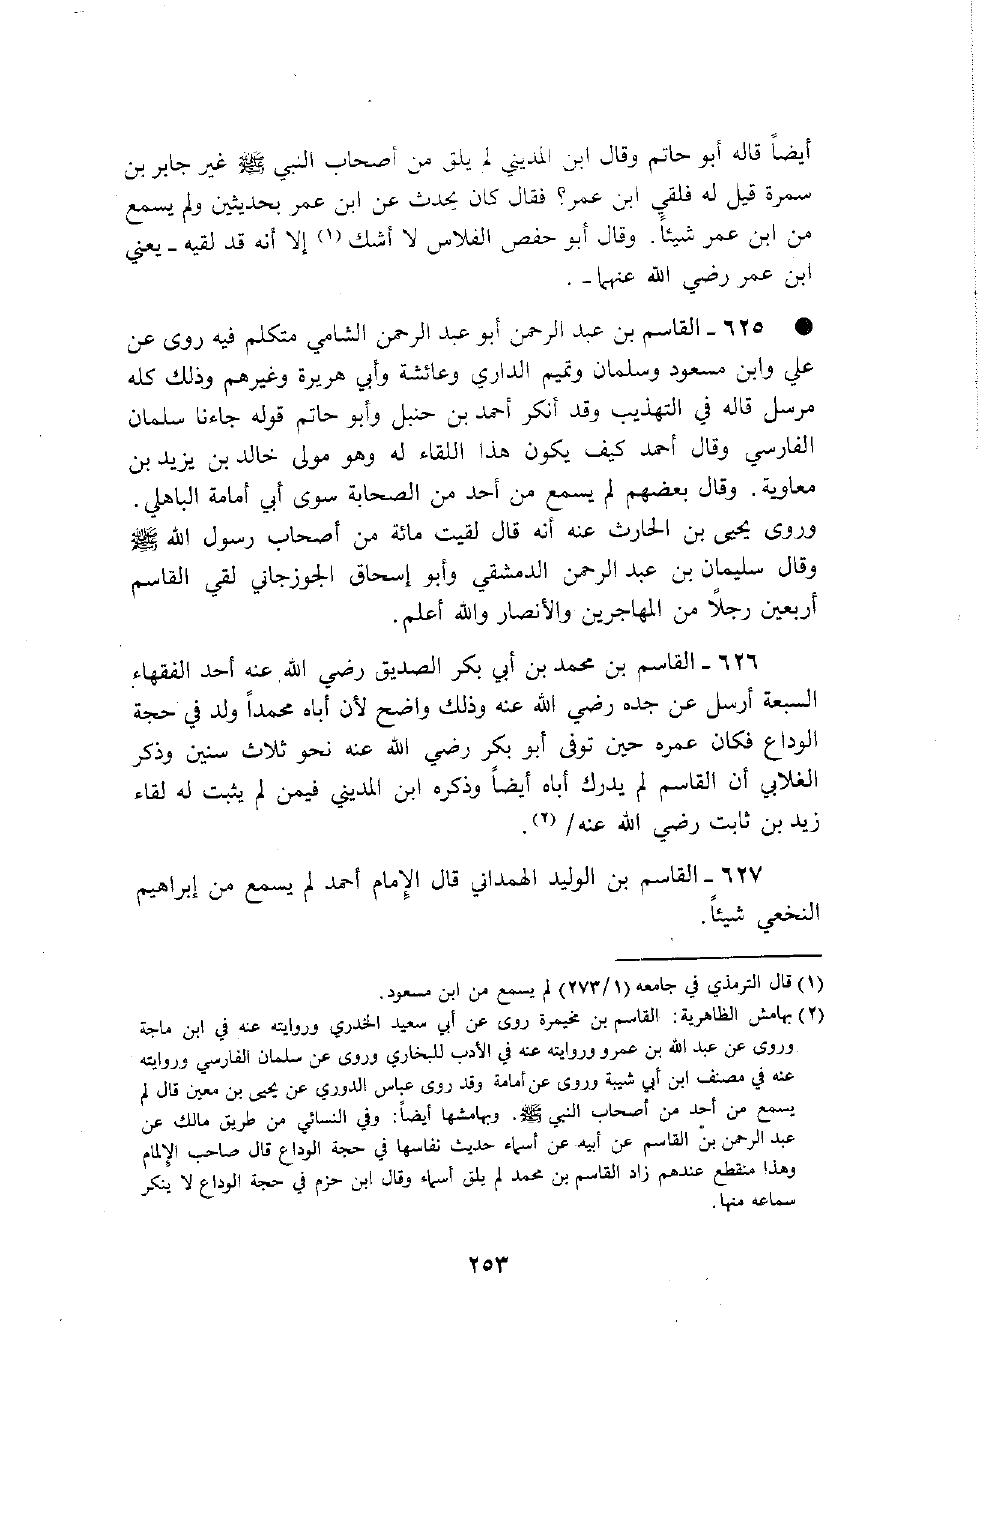 أيضاً قاله أبو حاتم وقال ابن المديني لم يلق من أصحاب النبي ﷺ غير جابر بن
سمرة قيل له فلقي ابن عمر؟ فقال كان يحدث عن ابن عمر بحديثين ولم يسمع
من ابن عمر شيئاً. وقال أبو حفص الفلاس لا أشك (١) إلا أنه قد لقيه ـ يعني
ابن عمر رضي الله عنهما ـ .
● ٦٢٥ ـ القاسم بن عبد الرحمن أبو عبد الرحمن الشامي متكلم فيه روى عن
علي وابن مسعود وسلمان وتميم الداري وعائشة وأبي هريرة وغيرهم وذلك كله
مرسل قاله في التهذيب وقد أنكر أحمد بن حنبل وأبو حاتم قوله جاءنا سلمان
الفارسي وقال أحمد كيف يكون هذا اللقاء له وهو مولى خالد بن يزيد بن
معاوية. وقال بعضهم لم يسمع من أحد من الصحابة سوى أبي أمامة الباهلي.
وروى يحيى بن الحارث عنه أنه قال لقيت مائة من أصحاب رسول الله ﷺ
وقال سليمان بن عبد الرحمن الدمشقي وأبو إسحاق الجوزجاني لقي القاسم
أربعين رجلاً من المهاجرين والأنصار والله أعلم.
٦٢٦ ـ القاسم بن محمد بن أبي بكر الصديق رضي الله عنه أحد الفقهاء
السبعة أرسل عن جده رضي الله عنه وذلك واضح لأن أباه محمداً ولد في حجة
الوداع فكان عمره حين توفى أبو بكر رضي الله عنه نحو ثلاث سنين وذكر
الغلابي أن القاسم لم يدرك أباه أيضاً وذكره ابن المديني فيمن لم يثبت له لقاء
زيد بن ثابت رضي الله عنه/ (٢).
٦٢٧ ـ القاسم بن الوليد الهمداني قال الإمام أحمد لم يسمع من إبراهيم
النخعي شيئاً.
(١) قال الترمذي في جامعه (٢٧٣/١) لم يسمع من ابن مسعود.
(٢) بهامش الظاهرية: القاسم بن مخيمرة روى عن أبي سعيد الخدري وروايته عنه في ابن ماجة
وروى عن عبد الله بن عمرو وروايته عنه في الأدب للبخاري وروى عن سلمان الفارسي وروايته
عنه في مصنف ابن أبي شيبة وروى عن أمامة وقد روى عباس الدوري عن يحيى بن معين قال لم
يسمع من أحد من أصحاب النبي ﷺ. وبهامشها أيضاً: وفي النسائي من طريق مالك عن
عبد الرحمن بن القاسم عن أبيه عن أسماء حديث نفاسها في حجة الوداع قال صاحب الإلمام
وهذا منقطع عندهم زاد القاسم بن محمد لم يلق أسماء وقال ابن حزم في حجة الوداع لا ينكر
سماعه منها.
٢٥٣